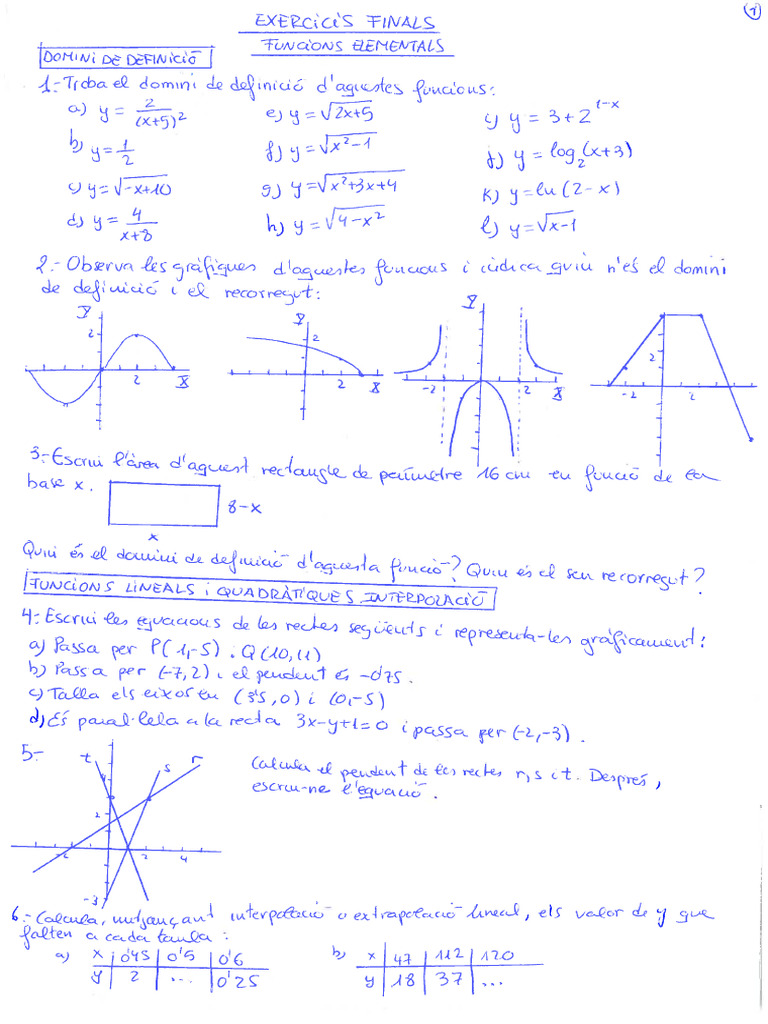 1
EXERCICIS FINALS
FUNCIONS ELEMENTALS
DOMINI DE DEFINICIÓ
1.- Troba el domini de definició d'aquestes funcions:
a) y = 2/(x+5)²   e) y = √(2x+5)   i) y = 3 + 2^(1-x)
b) y = 1/2   f) y = √(x²-1)   j) y = log₂(x+3)
c) y = √(-x+10)   g) y = √(x²+3x+4)   k) y = ln(2-x)
d) y = 4/(x+8)   h) y = √(4-x²)   l) y = √x-1
2.- Observa les gràfiques d'aquestes funcions i indica quin n'és el domini
de definició i el recorregut:
Y 2 2 X
Y 2 2 X
Y -2 2 X
2 -2 2
3.- Escriu l'àrea d'aquest rectangle de perímetre 16 cm en funció de la
base x.
8-x
x
Quin és el domini de definició d'aquesta funció? Quin és el seu recorregut?
FUNCIONS LINEALS i QUADRÀTIQUES. INTERPOLACIÓ
4.- Escriu les equacions de les rectes següents i representa-les gràficament:
a) Passa per P(1,-5) i Q(10,11)
b) Passa per (-7,2) i el pendent és -0'75.
c) Talla els eixos en (3'5,0) i (0,-5)
d) És paral·lela a la recta 3x-y+1=0 i passa per (-2,-3).
5.-
t s r
2
2 4
-3
Calcula el pendent de les rectes r, s i t. Després,
escriu-ne l'equació.
6.- Calcula, mitjançant interpolació o extrapolació lineal, els valor de y que
falten a cada taula:
a) x | 0'45 | 0'5 | 0'6   b) x | 47 | 112 | 120
y | 2 | ... | 0'25   y | 18 | 37 | ...